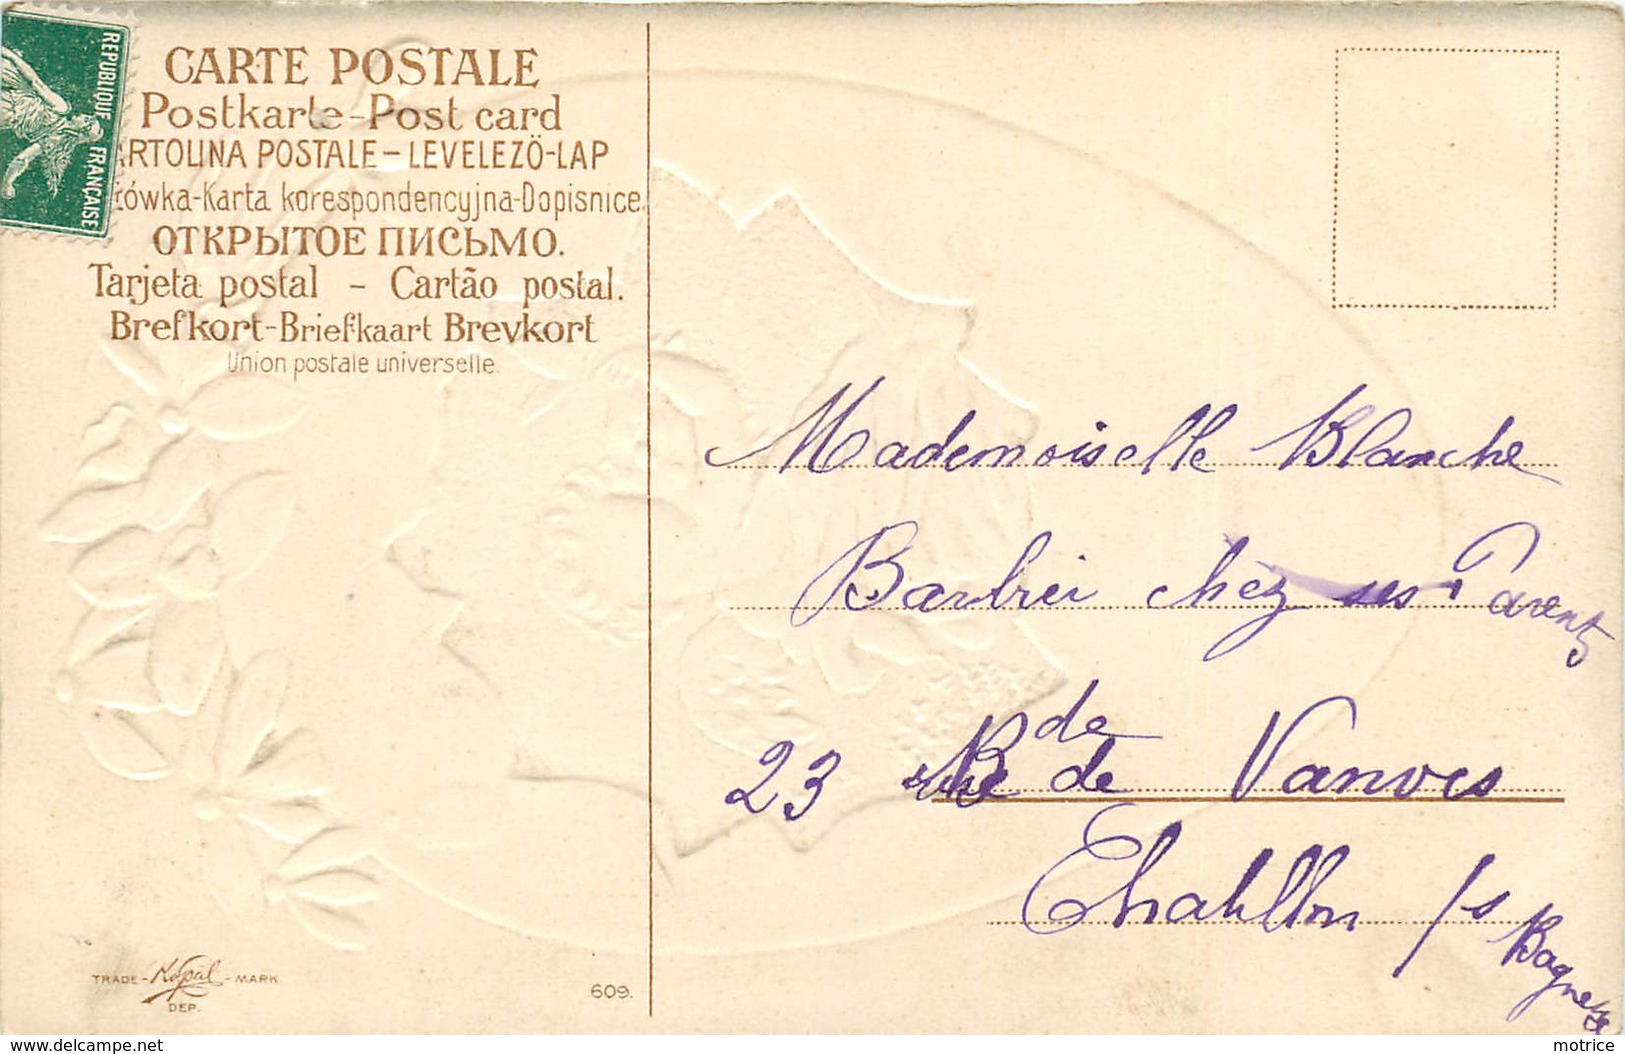 RÉPUBLIQUE FRANÇAISE
CARTE POSTALE
Postkarte-Post card
ARTOLINA POSTALE-LEVELEZÖ-LAP
ówka-Karta korespondencyjna-Dopisnice
ОТКРЫТОЕ ПИСЬМО.
Tarjeta postal - Cartão postal.
Brefkort-Briefkaart Brevkort
Union postale universelle.
Mademoiselle Blanche
Barbier chez ses Parents
de
23 Rue de Vanves
Chatillon /s
Bagneux
TRADE - Kopal - MARK
DEP.
609.
https://www.delcampe.net
motrice